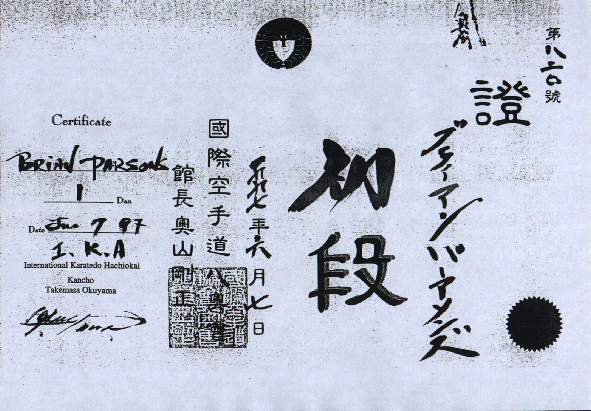 第八二〇號
證
ブライアン パーソンズ
初段
一九九七年六月七日
國際空手道八奥會
館長奥山剛正
Certificate
BRIAN PARSONS
1 Dan
Date Jun 7 97
I.K.A
International Karatedo Hachiokai
Kancho
Takemasa Okuyama